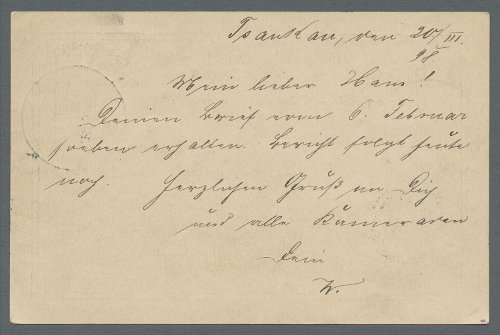 Tsankau, den 20/III.
98
Mein lieber Hans!
Deinen Brief vom 6. Februar
soeben erhalten. Bericht folgt heute
noch. Herzlichen Gruß an Dich
und alle Kameraden
Dein
W.